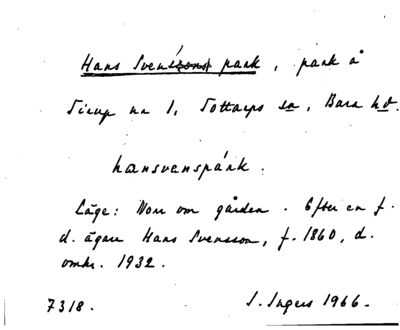 Hans Svens park, park å
Tirup nr 1, Tottarps sn, Bara hd.
hansvenspárk.
Läge: Norr om gården. Efter en f.
d. ägare Hans Svensson, f. 1860, d.
omkr. 1932.
7318. I. Ingers 1966.